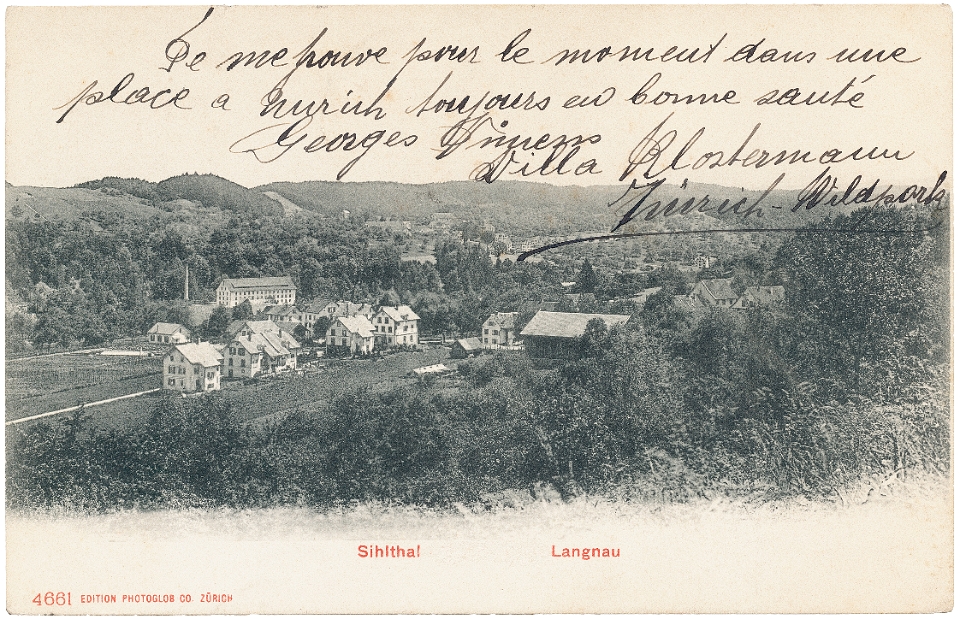 Je me trouve pour le moment dans une
place a Zurich toujours en bonne santé
Georges
Villa Klostermann
Zürich - Wildpark
Sihlthal Langnau
4661 EDITION PHOTOGLOB CO. ZÜRICH